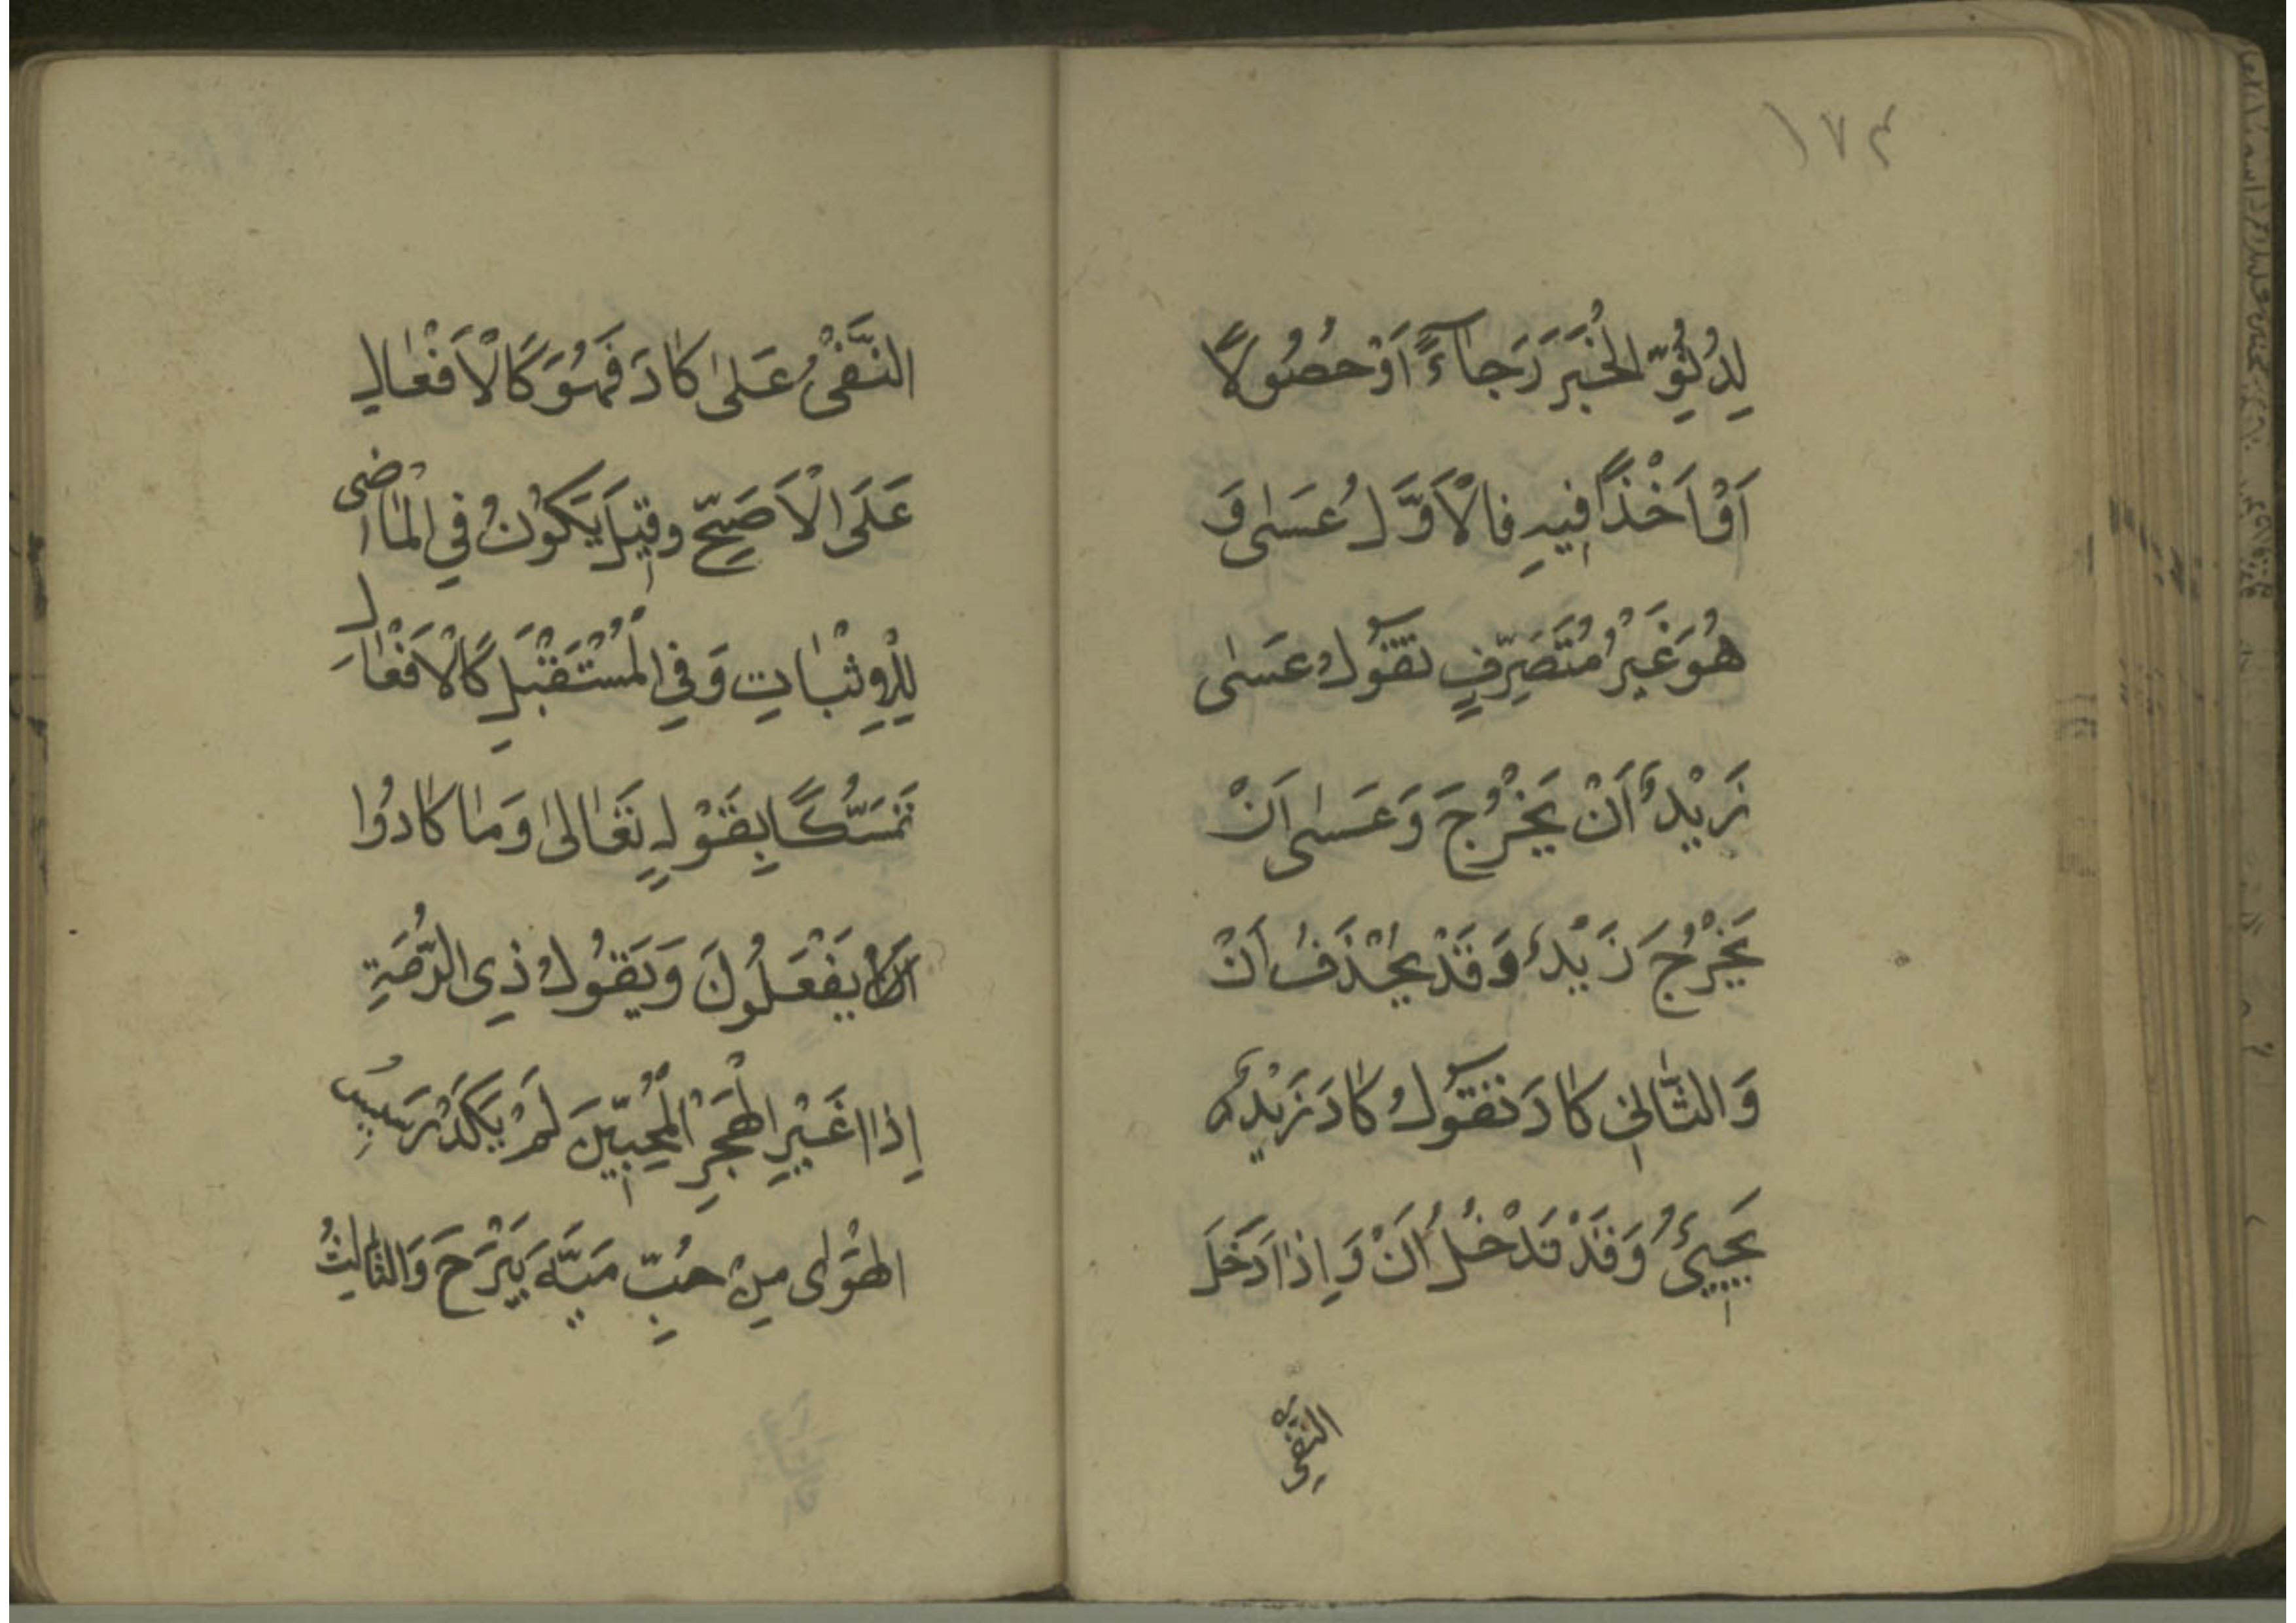 ١٧٤
لِدُنُوِّ الْخَبَرِ رَجَاءً اَوْ حُصُولًا
اَوْ اَخْذًا فِيهِ فَالْاَوَّلُ عَسٰى وَ
هُوَ غَيْرُ مُتَصَرِّفٍ تَقُولُ عَسٰى
زَيْدٌ اَنْ يَخْرُجَ وَعَسٰى اَنْ
يَخْرُجَ زَيْدٌ وَقَدْ يُحْذَفُ اَنْ
وَالثَّانِي كَادَ تَقُولُ كَادَ زَيْدٌ
يَجِيئُ وَقَدْ تَدْخُلُ اَنْ وَاِذَا دَخَلَ
النفى
النَّفْيُ عَلٰى كَادَ فَهُوَ كَالْاَفْعَالِ
عَلَى الْاَصَحِّ وَقِيلَ يَكُونُ فِي الْمَاضِى
لِلْاِثْبَاتِ وَفِي الْمُسْتَقْبَلِ كَالْاَفْعَالِ
تَمَسُّكًا بِقَوْلِهِ تَعَالٰى وَمَا كَادُوا
يَفْعَلُونَ وَبِقَوْلِ ذِى الرُّمَّةِ
اِذَا غَيَّرَ الْهَجْرُ الْمُحِبِّينَ لَمْ يَكَدْ رَسِيسُ
الْهَوٰى مِنْ حُبِّ مَيَّةَ يَبْرَحُ وَالثَّالِثُ